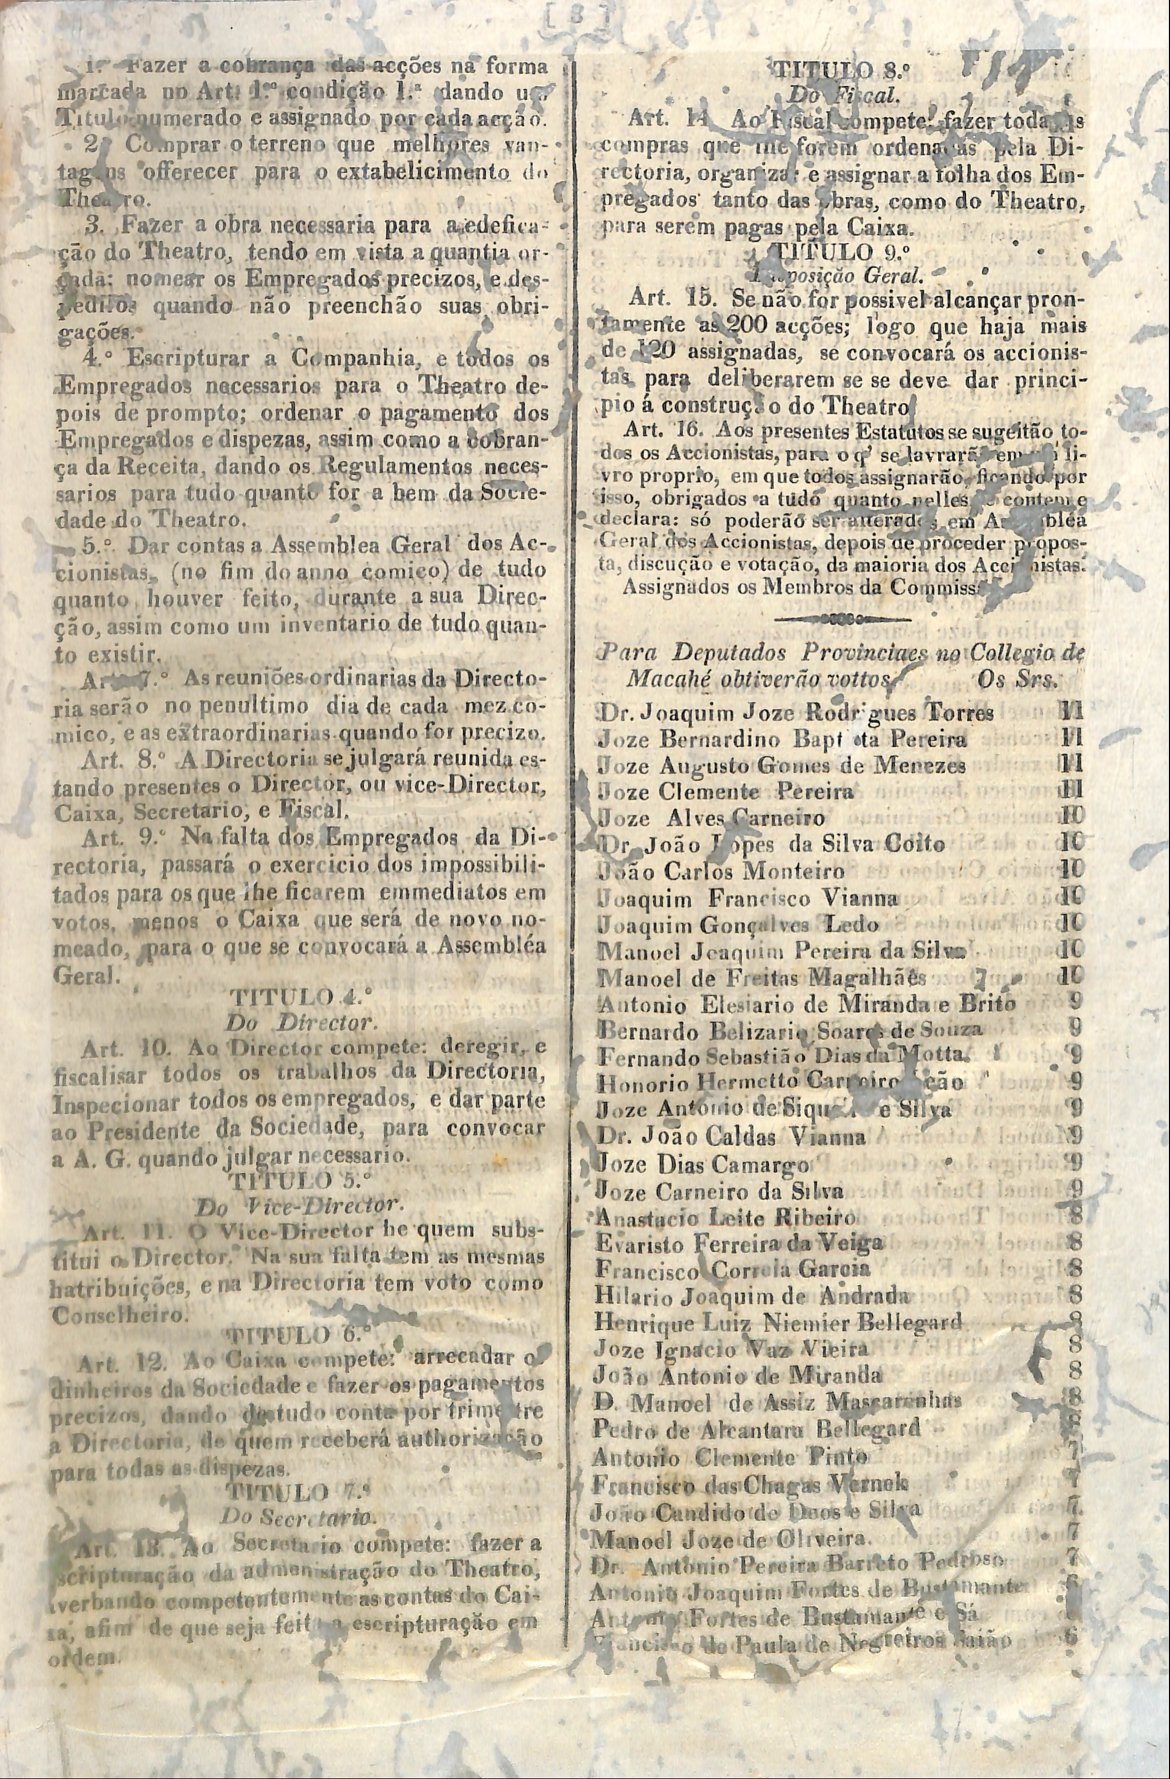 [ 3 ]
1.º Fazer a cobrança das acções na forma
marcada no Art. 1.º condição 1.ª dando um
Titulo numerado e assignado por cada acção.
2. Comprar o terreno que melhores van-
tagens offerecer para o extabelicimento do
Theatro.
3. Fazer a obra necessaria para a edefica-
ção do Theatro, tendo em vista a quantia or-
çada: nomear os Empregados precizos, e des-
pedilos quando não preenchão suas obri-
gações.
4.º Escripturar a Companhia, e todos os
Empregados necessarios para o Theatro de-
pois de prompto; ordenar o pagamento dos
Empregados e dispezas, assim como a cobran-
ça da Receita, dando os Regulamentos neces-
sarios para tudo quanto for a bem da Socie-
dade do Theatro.
5.º Dar contas a Assemblea Geral dos Ac-
cionistas, (no fim do anno comico) de tudo
quanto houver feito, durante a sua Direc-
ção, assim como um inventario de tudo quan-
to existir.
Art. 7.º As reuniões ordinarias da Directo-
ria serão no penultimo dia de cada mez co-
mico, e as extraordinarias quando for precizo.
Art. 8.º A Directoria se julgará reunida es-
tando presentes o Director, ou vice-Director,
Caixa, Secretario, e Fiscal.
Art. 9.º Na falta dos Empregados da Di-
rectoria, passará o exercicio dos impossibili-
tados para os que lhe ficarem emmediatos em
votos, menos o Caixa que será de novo no-
meado, para o que se convocará a Assembléa
Geral.
TITULO 4.º
Do Director.
Art. 10. Ao Director compete: deregir, e
fiscalisar todos os trabalhos da Directoria,
Inspecionar todos os empregados, e dar parte
ao Presidente da Sociedade, para convocar
a A. G. quando julgar necessario.
TITULO 5.º
Do Vice-Director.
Art. 11. O Vice-Director he quem subs-
titui o Director. Na sua falta tem as mesmas
hatribuições, e na Directoria tem voto como
Conselheiro.
TITULO 6.º
Art. 12. Ao Caixa compete: arrecadar o
dinheiros da Sociedade e fazer os pagamentos
precizos, dando de tudo conta por trimestre
a Directoria, de quem receberá authorização
para todas as dispezas.
TITULO 7.º
Do Secretario.
Art. 13. Ao Secretario compete: fazer a
scripturação da admenistração do Theatro,
averbando competentemente as contas do Cai-
xa, afim de que seja feita a escripturação em
ordem.
TITULO 8.º
Do Fiscal.
Art. 14 Ao Fiscal compete: fazer todas as
compras que lhe forem ordenadas pela Di-
rectoria, organizar e assignar a folha dos Em-
pregados tanto das obras, como do Theatro,
para serem pagas pela Caixa.
TITULO 9.º
Disposição Geral.
Art. 15. Se não for possivel alcançar pron-
tamente as 200 acções; logo que haja mais
de 120 assignadas, se convocará os accionis-
tas para deliberarem se se deve dar princi-
pio á construção do Theatro
Art. 16. Aos presentes Estatutos se sugeitão to-
dos os Accionistas, para o q' se lavrará em um li-
vro proprio, em que todos assignarão, ficando por
isso, obrigados a tudo quanto nelles se contem e
declara: só poderão ser alterados em Assembléa
Geral dos Accionistas, depois de proceder propos-
ta, discução e votação, da maioria dos Accionistas.
Assignados os Membros da Commissão
Para Deputados Provinciaes no Collegio de
Macahé obtiverão vottos Os Srs.
Dr. Joaquim Joze Rodrigues Torres 11
Joze Bernardino Baptista Pereira 11
Joze Augusto Gomes de Menezes 11
Joze Clemente Pereira 11
Joze Alves Carneiro 10
Dr. João Lopes da Silva Coito 10
João Carlos Monteiro 10
Joaquim Francisco Vianna 10
Joaquim Gonçalves Ledo 10
Manoel Joaquim Pereira da Silva 10
Manoel de Freitas Magalhães 10
Antonio Elesiario de Miranda e Brito 9
Bernardo Belizario Soares de Souza 9
Fernando Sebastião Dias da Motta. 9
Honorio Hermetto Carneiro Leão 9
Joze Antonio de Siqueira e Silva 9
Dr. João Caldas Vianna 9
Joze Dias Camargo 9
Joze Carneiro da Silva 9
Anastacio Leite Ribeiro 8
Evaristo Ferreira da Veiga 8
Francisco Correia Garcia 8
Hilario Joaquim de Andrada 8
Henrique Luiz Niemier Bellegard 8
Joze Ignacio Vaz Vieira 8
João Antonio de Miranda 8
D. Manoel de Assiz Mascarenhas 8
Pedro de Alcantara Bellegard 8
Antonio Clemente Pinto 7
Francisco das Chagas Vernek 7
João Candido de Deos e Silva 7
Manoel Joze de Oliveira. 7
Dr. Antonio Pereira Barreto Pedroso 7
Antonio Joaquim Fortes de Bustamante 6
Antonio Fortes de Bustamante e Sá
Francisco de Paula de Negreiros Saião 6